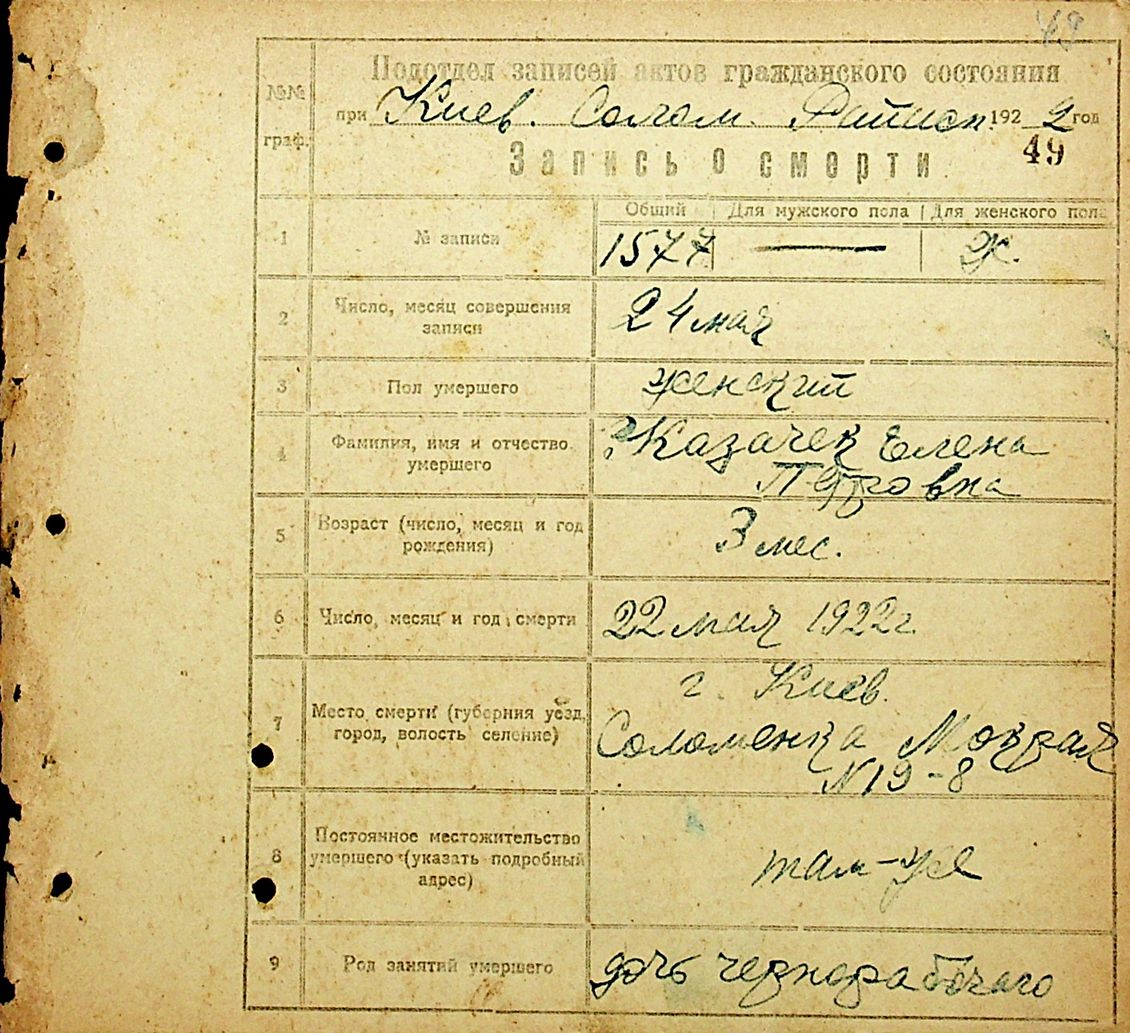 49
Подотдел записей актов гражданского состояния
№№ граф.
при Киев. Солом. Райисп. 1922 год
49
Запись о смерти
Общий Для мужского пола Для женского пола
1 № записи 1577 — Ж.
2 Число, месяц совершения записи 24 мая
3 Пол умершего женский
4 Фамилия, имя и отчество умершего ? Казачек Елена
Петровна
5 Возраст (число, месяц и год рождения) 3 мес.
6 Число, месяц и год смерти 22 мая 1922 г.
7 Место смерти (губерния уезд, город, волость селение) г. Киев.
Соломенка Мокрая
N 19-8
8 Постоянное местожительство умершего (указать подробный адрес) там-же
9 Род занятий умершего дочь чернорабочаго